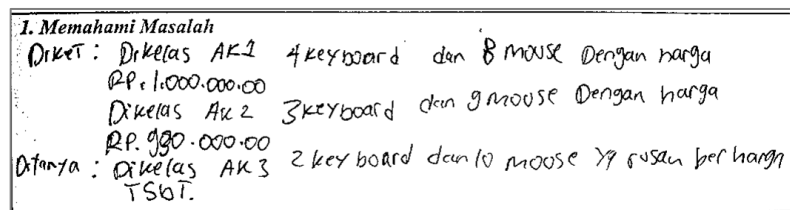 1. Memahami Masalah
Diket : Dikelas AK1 4 keyboard dan 8 mouse Dengan harga
RP. 1.000.000.00
Dikelas AK 2 3 keyboard dan 9 mouse Dengan harga
RP. 990.000.00
Ditanya : Dikelas AK3 2 key board dan 10 moose yg rusan ber harga
TSbT.